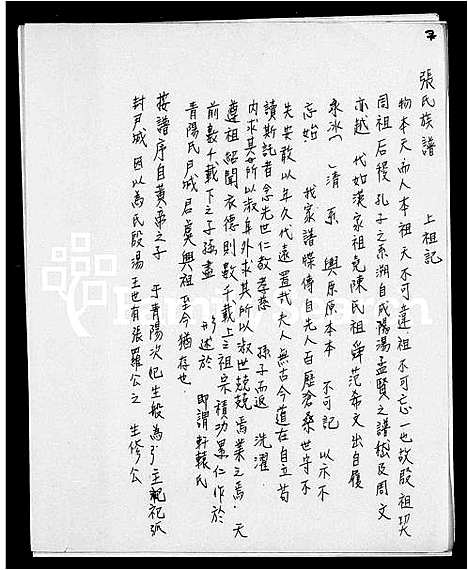 張氏族譜　上祖記
物本天而人本祖天不可違祖不可忘一也故殷祖契
周祖后稷孔子之系溯自成湯孟賢之譜 及周文
亦越　代如漢家祖堯陳民祖舜范希文出自履
永冰　清系　與原原本本　不可記　以示不
忘始　我家譜牒傳自先人百歷滄桑世守不
失安敢以年久代遠置哉夫人無古今道在自立苟
讀斯記者念先世仁敬孝慈　孫子而返　洗濯
內求其所以淑身外求其所以淑世兢兢焉業之焉　天
遵祖紹聞衣德則數千載上之祖宗積功累仁作於
前數千載下之子孫　述於　即謂軒轅氏
青陽氏尸城君虞興祖至今猶存也
按譜序自黃帝之子　于青陽次妃生般為弓主祀弧
封尸城因以為氏殷湯王世有張羅公之　生修公